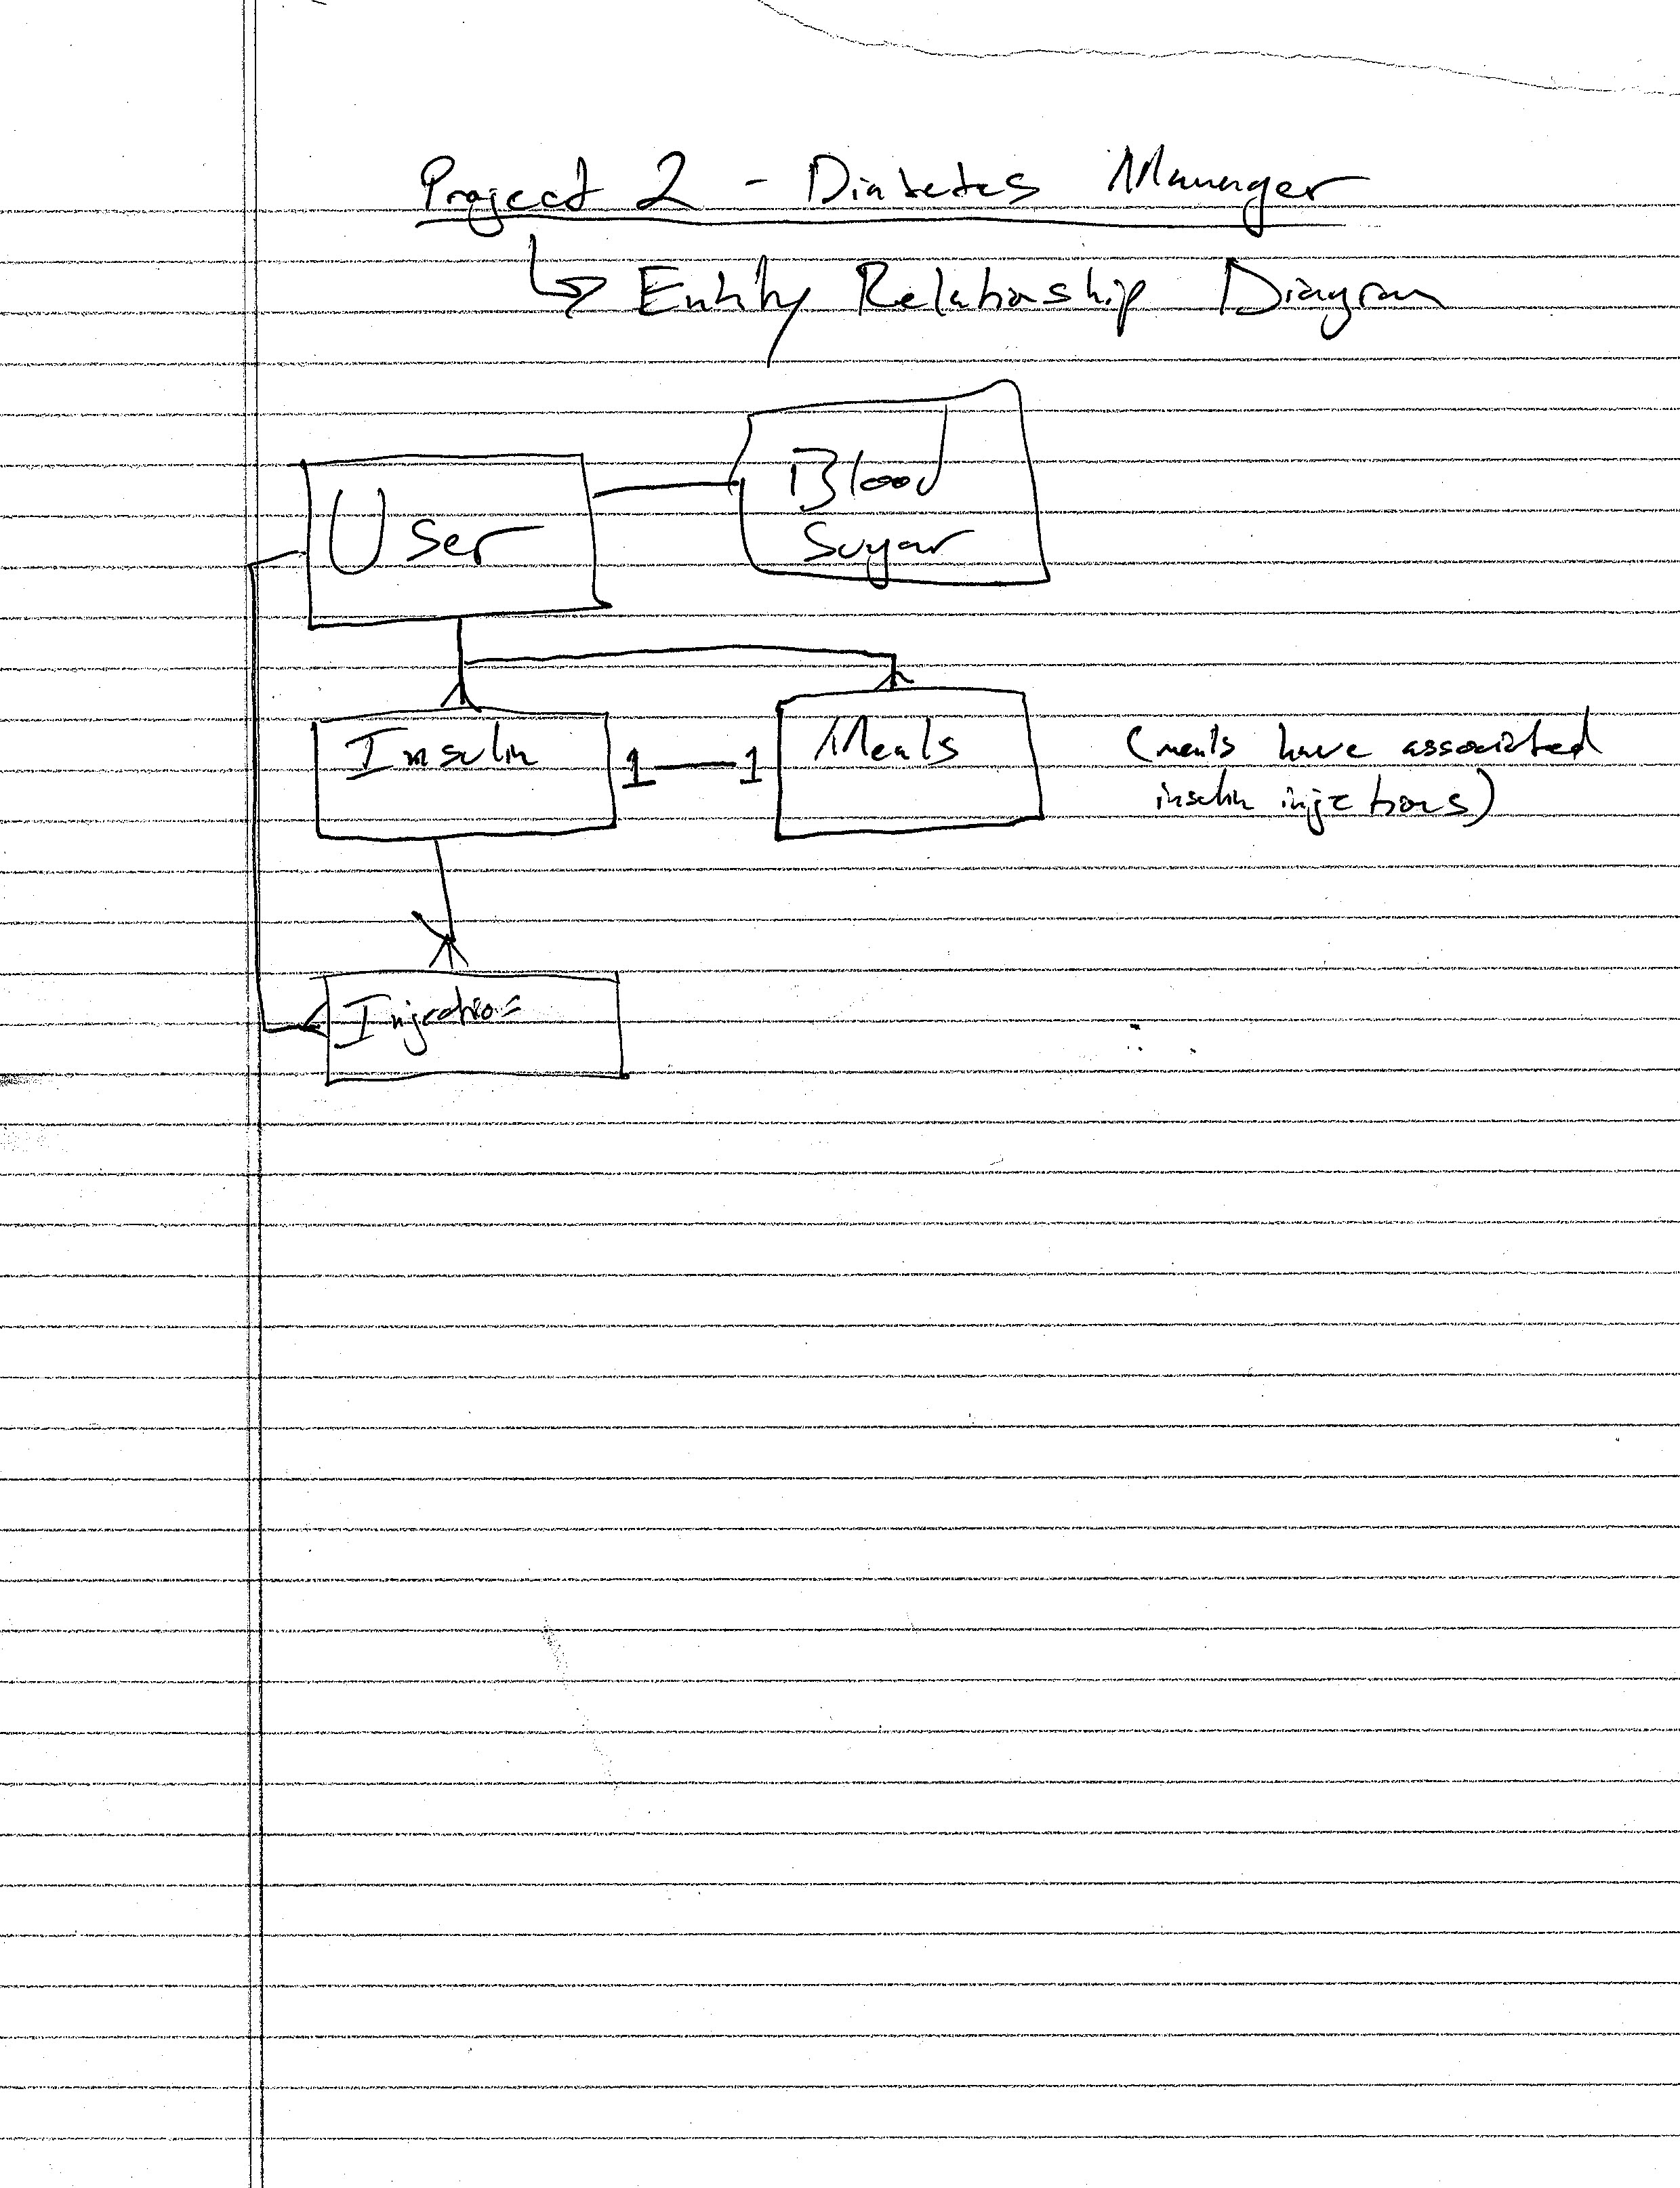 Project 2 - Diabetes Manager
Entity Relationship Diagram
User
Blood
Sugar
Insulin
1 1
Meals
(meals have associated
insulin injections)